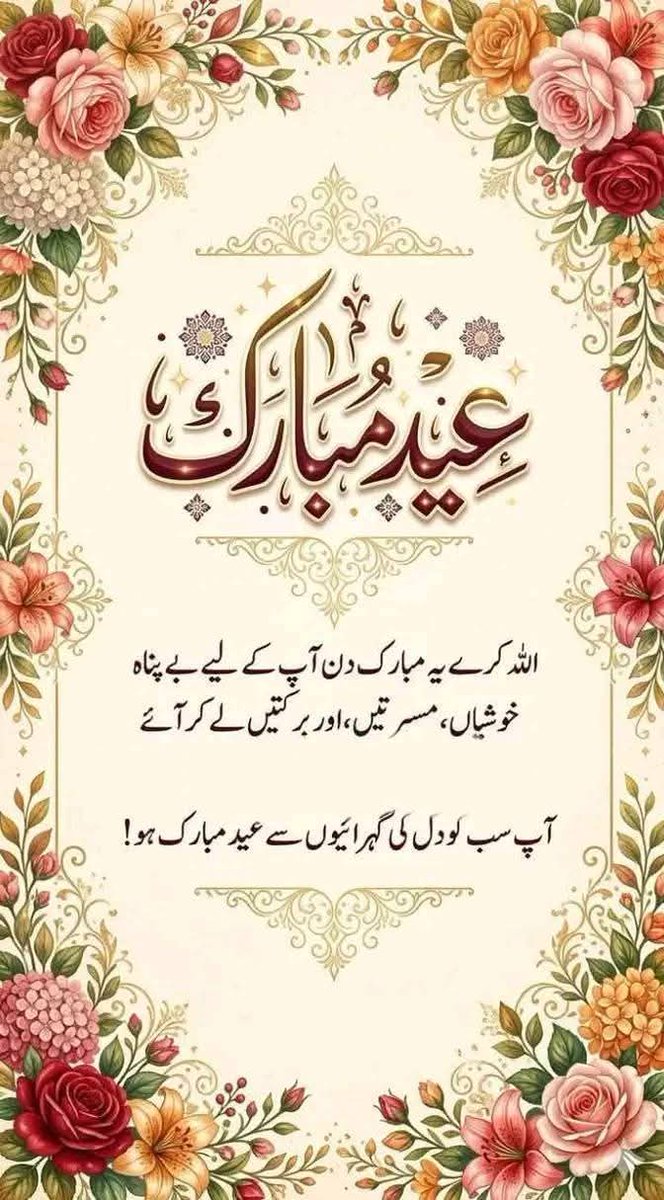 عید مبارک
اللہ کرے یہ مبارک دن آپ کے لیے بے پناہ
خوشیاں، مسرتیں، اور برکتیں لے کر آئے
آپ سب کو دل کی گہرائیوں سے عید مبارک ہو!